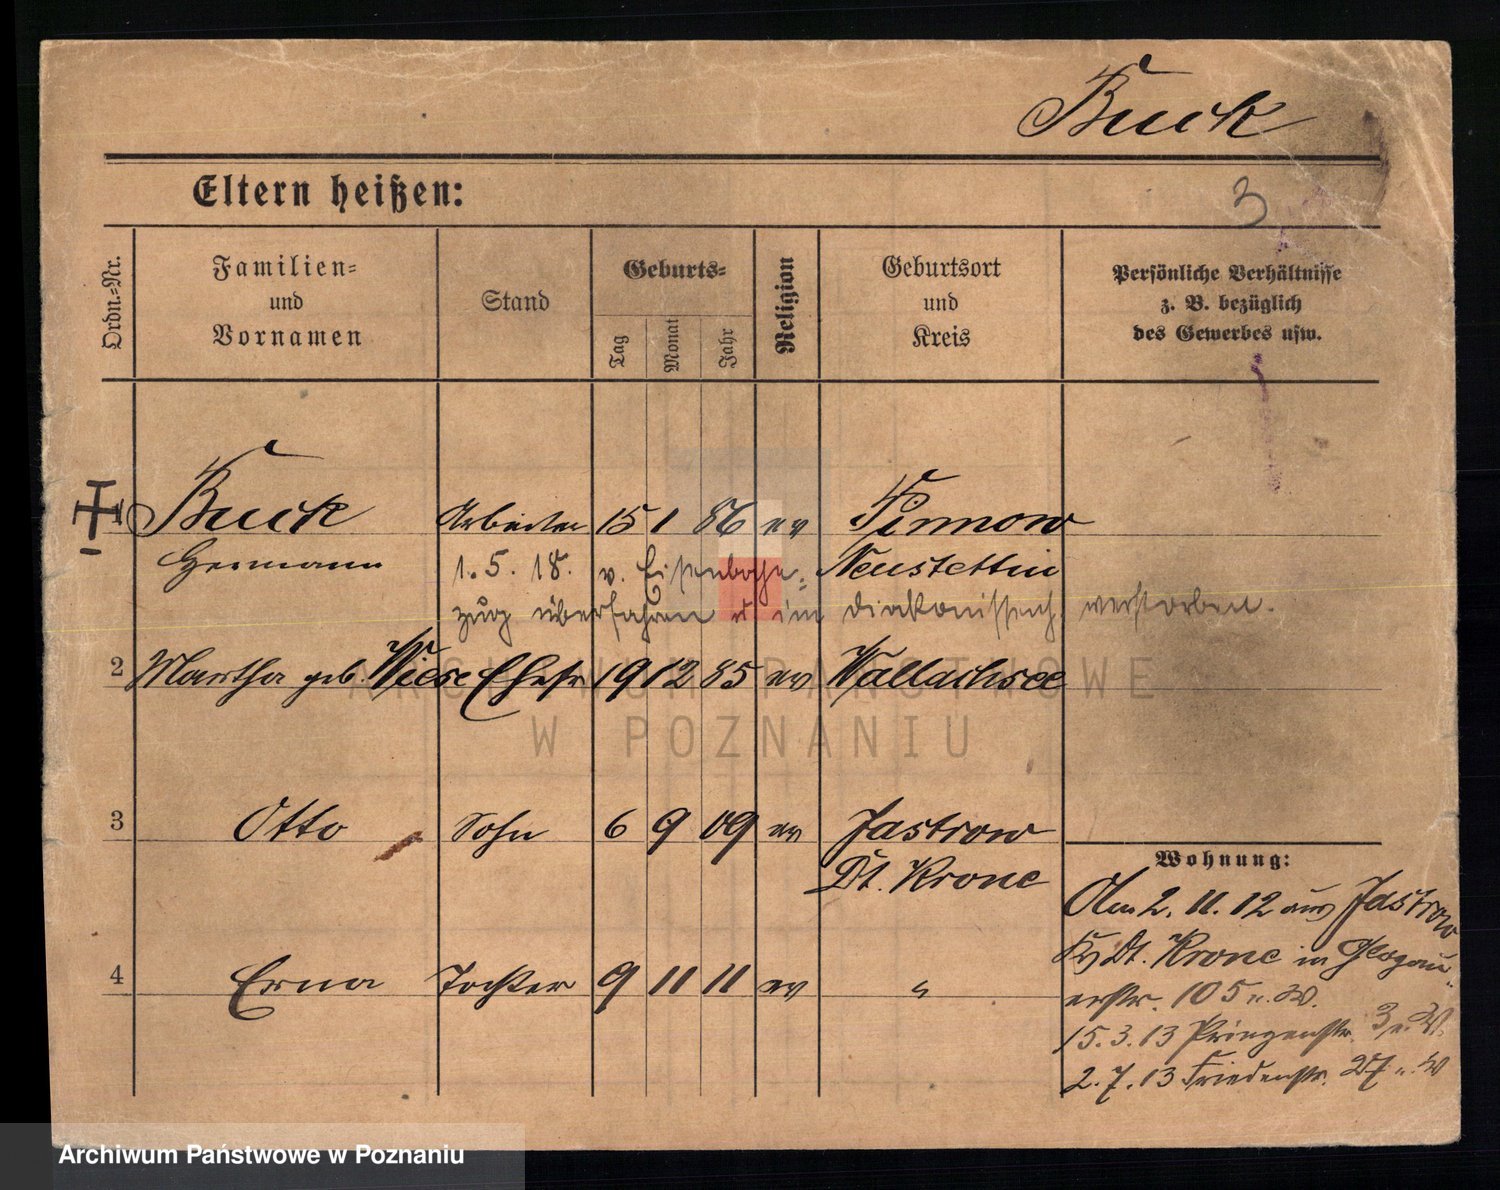 Buck
Eltern heißen:
3
Ordn.-Nr.
Familien-
und
Vornamen
Stand
Geburts-
Tag
Monat
Jahr
Religion
Geburtsort
und
Kreis
Persönliche Verhältnisse
z. B. bezüglich
des Gewerbes usw.
1 Buck Arbeiter 15 1 86 ev Pinnow
Hermann Neustettin
1. 5. 18. v. Eisenbahn-
zug überfahren u im Diakonissenh. verstorben.
2 Martha geb. Wiese Ehefr 19 12 85 ev Wallachsee
ARCHIWUM PAŃSTWOWE
W POZNANIU
3 Otto Sohn 6 9 09 ev Jastrow
Dt. Krone
4 Erna Tochter 9 11 11 ev "
Wohnung:
Am 2. 11. 12 aus Jastrow
Kr Dt. Krone in Glogau-
erstr. 105 u. W.
15. 3. 13 Prinzenstr. 3 u. W.
2. 7. 13 Friedenstr. 27 u. W
Archiwum Państwowe w Poznaniu